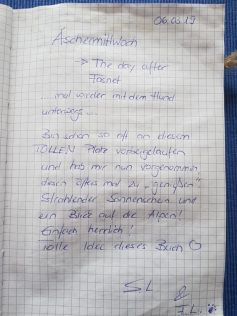 06.03.19
Aschermittwoch
→ The day after
Fasnet
mal wieder mit dem Hund
unterwegs...
Bin schon so oft an diesem
TOLLEN Platz vorbeigelaufen
und hab mir nun vorgenommen
diesen öfters mal zu "genießen".
Strahlender Sonnenschein und
ein Blick auf die Alpen!
Einfach herrlich!
Tolle Idee dieses Buch
S.L
&